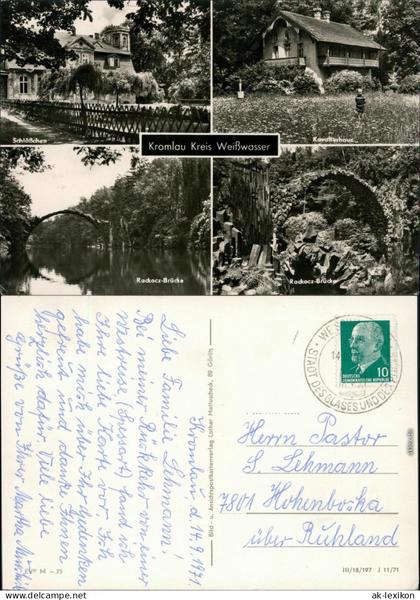 Schlößchen
Kavalierhaus
Kromlau Kreis Weißwasser
Rackocz-Brücke
Rackocz-Brücke
Kromlau d. 14.9.1971
Liebe Familie Lehmann!
Bei meiner Rückfahrt von einer
fand ich
Ihre liebe Karte vor. Ich
habe mich über Ihr Gedenken
gefreut und danke Ihnen
herzlich dafür. Viel liebe
Grüße von Ihrer Martha
Bild- u. Ansichtspostkartenverlag Lothar
89 Görlitz
EVP M -.25
STADT DES GLASES UND DER
DEUTSCHE
DEMOKRATISCHE REPUBLIK
10
Herrn Pastor
S. Lehmann
7801 Hohenbocka
über Ruhland
III/18/197 J 11/71
ak-lexikon.com